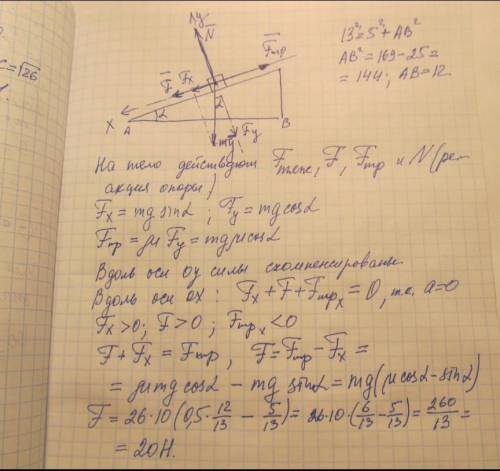 C=√26
y
N
Fтр
F
Fx
X
A
α
α
B
mg
Fy
13²=5²+AB²
AB²=169-25=
=144; AB=12.
На тело действуют Fтяж, F, Fтр и N (ре-
акция опоры)
Fx=mg sinα ; Fy=mg cosα
Fтр=μ Fy=mgμcosα
Вдоль оси oy силы скомпенсированы.
Вдоль оси ox: Fx+F+Fтрx=0, т.е. a=0
Fx>0; F>0; Fтрx<0
F+Fx=Fтр, F=Fтр-Fx=
=μmg cosα - mg sinα=mg(μcosα-sinα)
F=26·10(0,5·12/13 - 5/13)=26·10(6/13-5/13)=260/13=
=20Н.